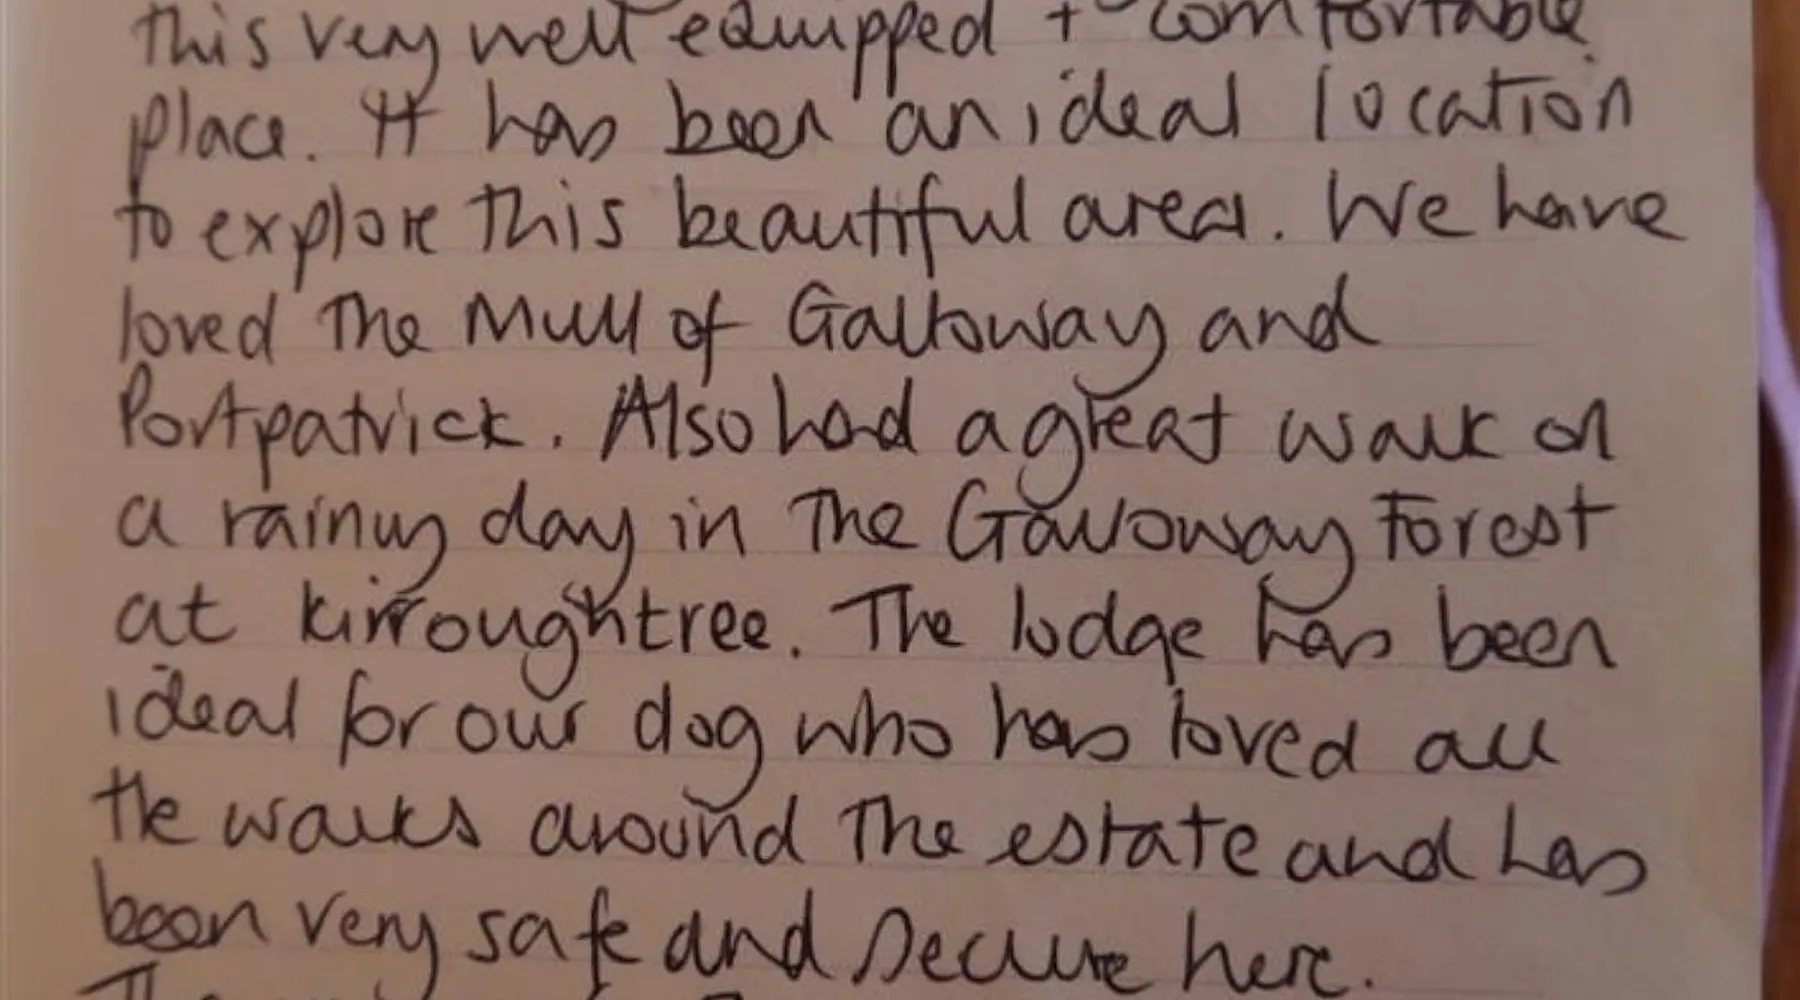 this very well equipped + comfortable
place. It has been an ideal location
to explore this beautiful area. We have
loved the Mull of Galloway and
Portpatrick. Also had a great walk on
a rainy day in the Galloway Forest
at kirroughtree. The lodge has been
ideal for our dog who has loved all
the walks around the estate and has
been very safe and secure here.